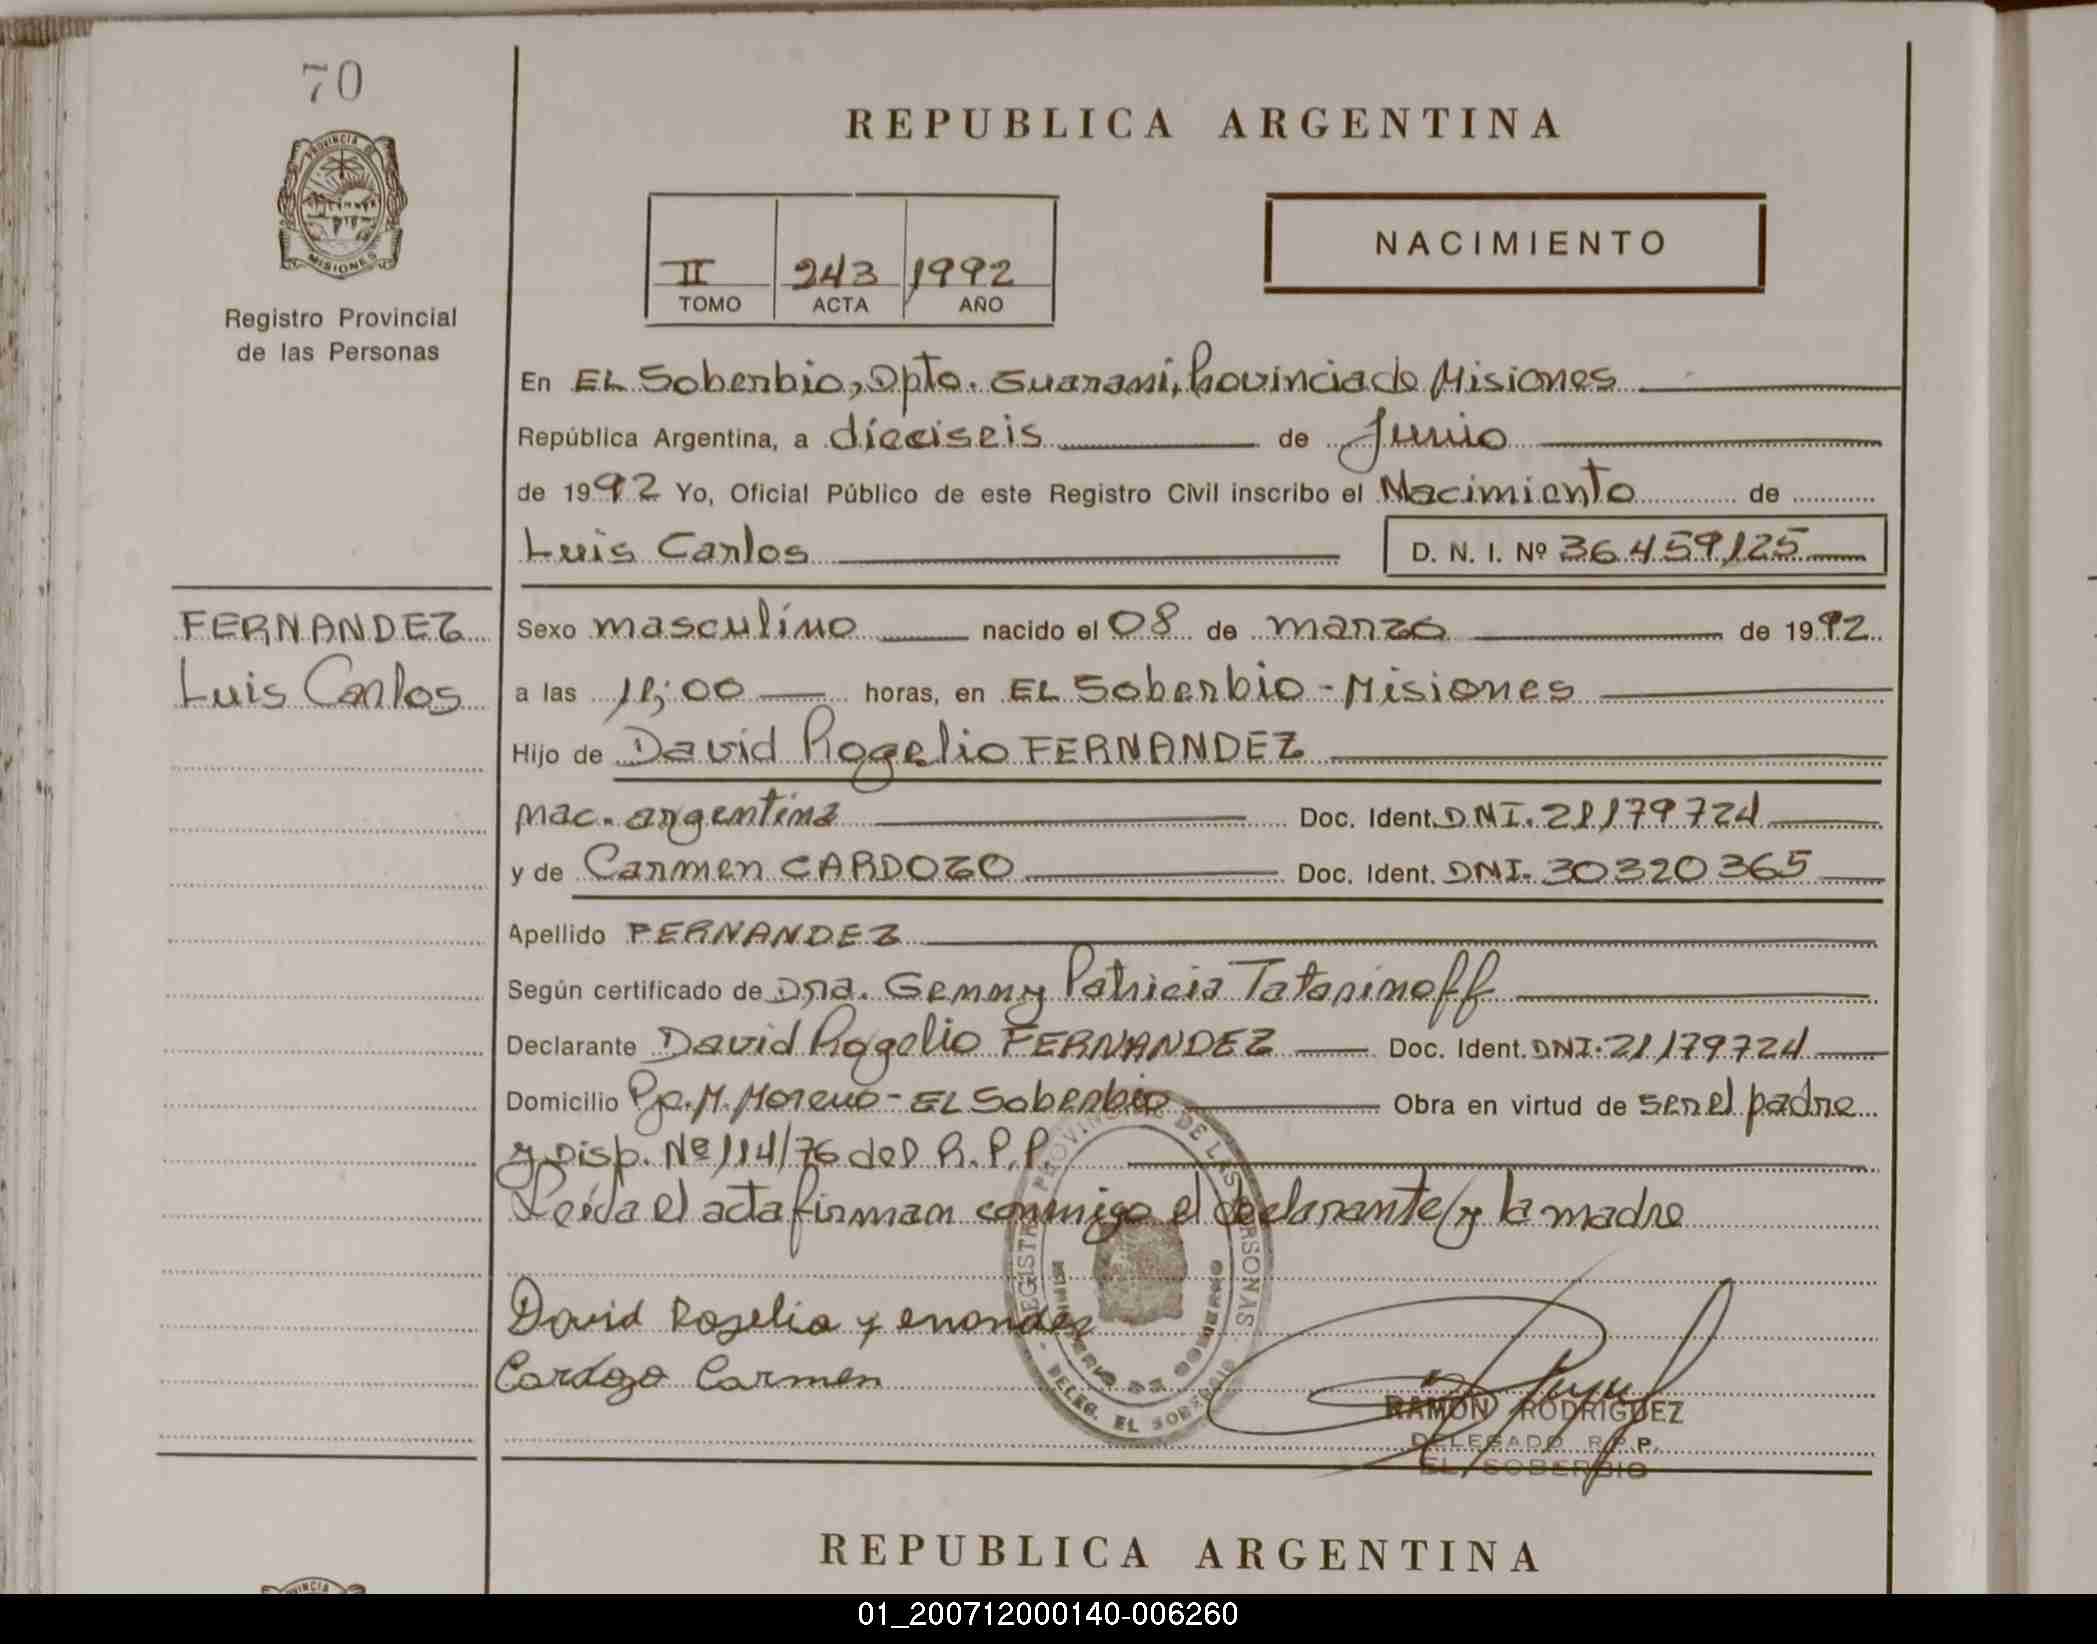 70
PROVINCIA DE
MISIONES
Registro Provincial
de las Personas
REPUBLICA ARGENTINA
II 243 1992
TOMO ACTA AÑO
NACIMIENTO
En EL Soberbio, Dpto. Guarani, Provincia de Misiones
República Argentina, a dieciseis de Junio
de 1992 Yo, Oficial Público de este Registro Civil inscribo el Nacimiento de
Luis Carlos D. N. I. Nº 36.459125
FERNANDEZ
Luis Carlos
Sexo masculino nacido el 08 de marzo de 1992
a las 11:00 horas, en EL Soberbio - Misiones
Hijo de David Rogelio FERNANDEZ
nac. argentina Doc. Ident. DNI. 21179724
y de Carmen CARDOZO Doc. Ident. DNI. 30320365
Apellido FERNANDEZ
Según certificado de Dra. Gemmy Patricia Tatarinoff
Declarante David Rogelio FERNANDEZ Doc. Ident. DNI. 21179724
Domicilio Pje. M. Moreno - EL Soberbio Obra en virtud de ser el padre
y Disp. Nº 114/76 del R.P.P.
Leída el acta firman conmigo el declarante/y la madre
David Rogelio Fernandez
Cardozo Carmen
REGISTRO PROVINCIAL DE LAS PERSONAS
MINISTERIO DE GOBIERNO
DELEG. EL SOBERBIO
RAMON RODRIGUEZ
DELEGADO R.P.P.
EL SOBERBIO
REPUBLICA ARGENTINA
01_200712000140-006260